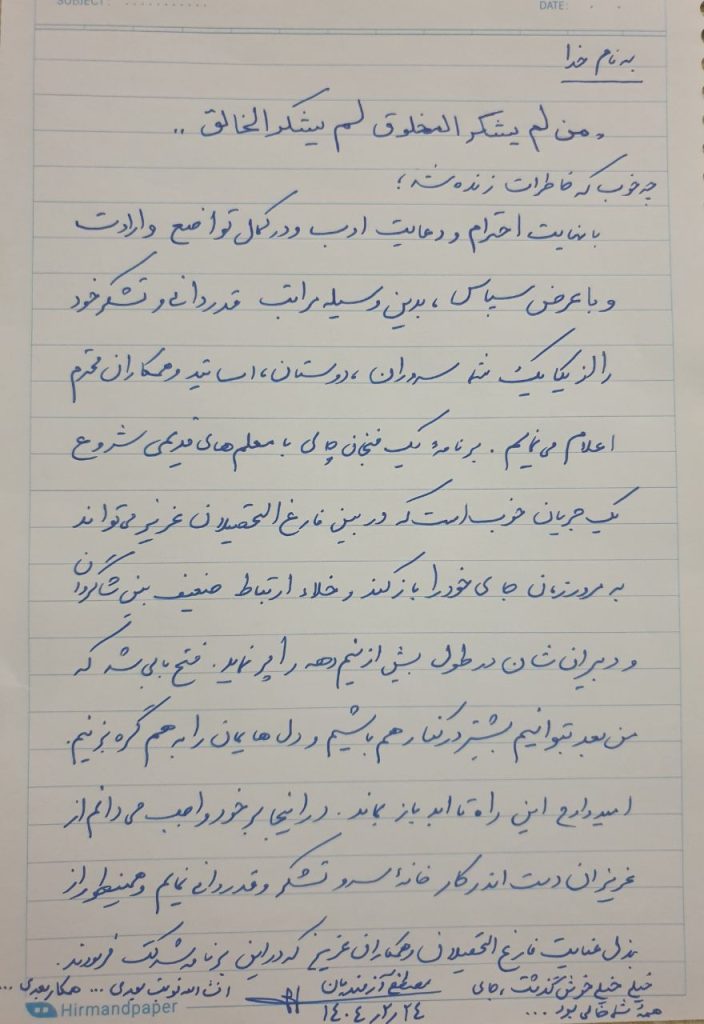 SUBJECT: ...........
DATE: . .
به نام خدا
"من لم یشکر المخلوق لم یشکر الخالق"..
چه خوب که خاطرات زنده شد؛
با نهایت احترام و رعایت ادب و در کمال تواضع و ارادت
و با عرض سپاس، بدین وسیله مراتب قدردانی و تشکر خود
را از یکایک شما سروران، دوستان، اساتید و همکاران محترم
اعلام می نمایم. برنامهٔ یک فنجان چای با معلم های قدیمی شروع
یک جریان خوب است که در بین فارغ التحصیلان عزیز می تواند
به مرور زمان جای خود را باز کند و خلاء ارتباط ضعیف بین شاگردان
و دبیران شان در طول بیش از نیم دهه را پر نماید. فتح بابی شد که
من بعد بتوانیم بیشتر در کنار هم باشیم و دل هایمان را به هم گره بزنیم.
امیدوارم این راه تا ابد باز بماند. در اینجا بر خود واجب می دانم از
عزیزان دست اندر کار خانهٔ سرو تشکر و قدردانی نمایم و همینطور از
بذل عنایت فارغ التحصیلان و همکاران عزیز که در این برنامه شرکت فرمودند.
خیلی خیلی خوش گذشت، جای
همهٔ شما خالی بود ...
مصطفی آزمندیان
۱۴۰۴/۲/۲۴
ان شاء الله نوبت بعدی ... همکار بعدی ...
Hirmandpaper